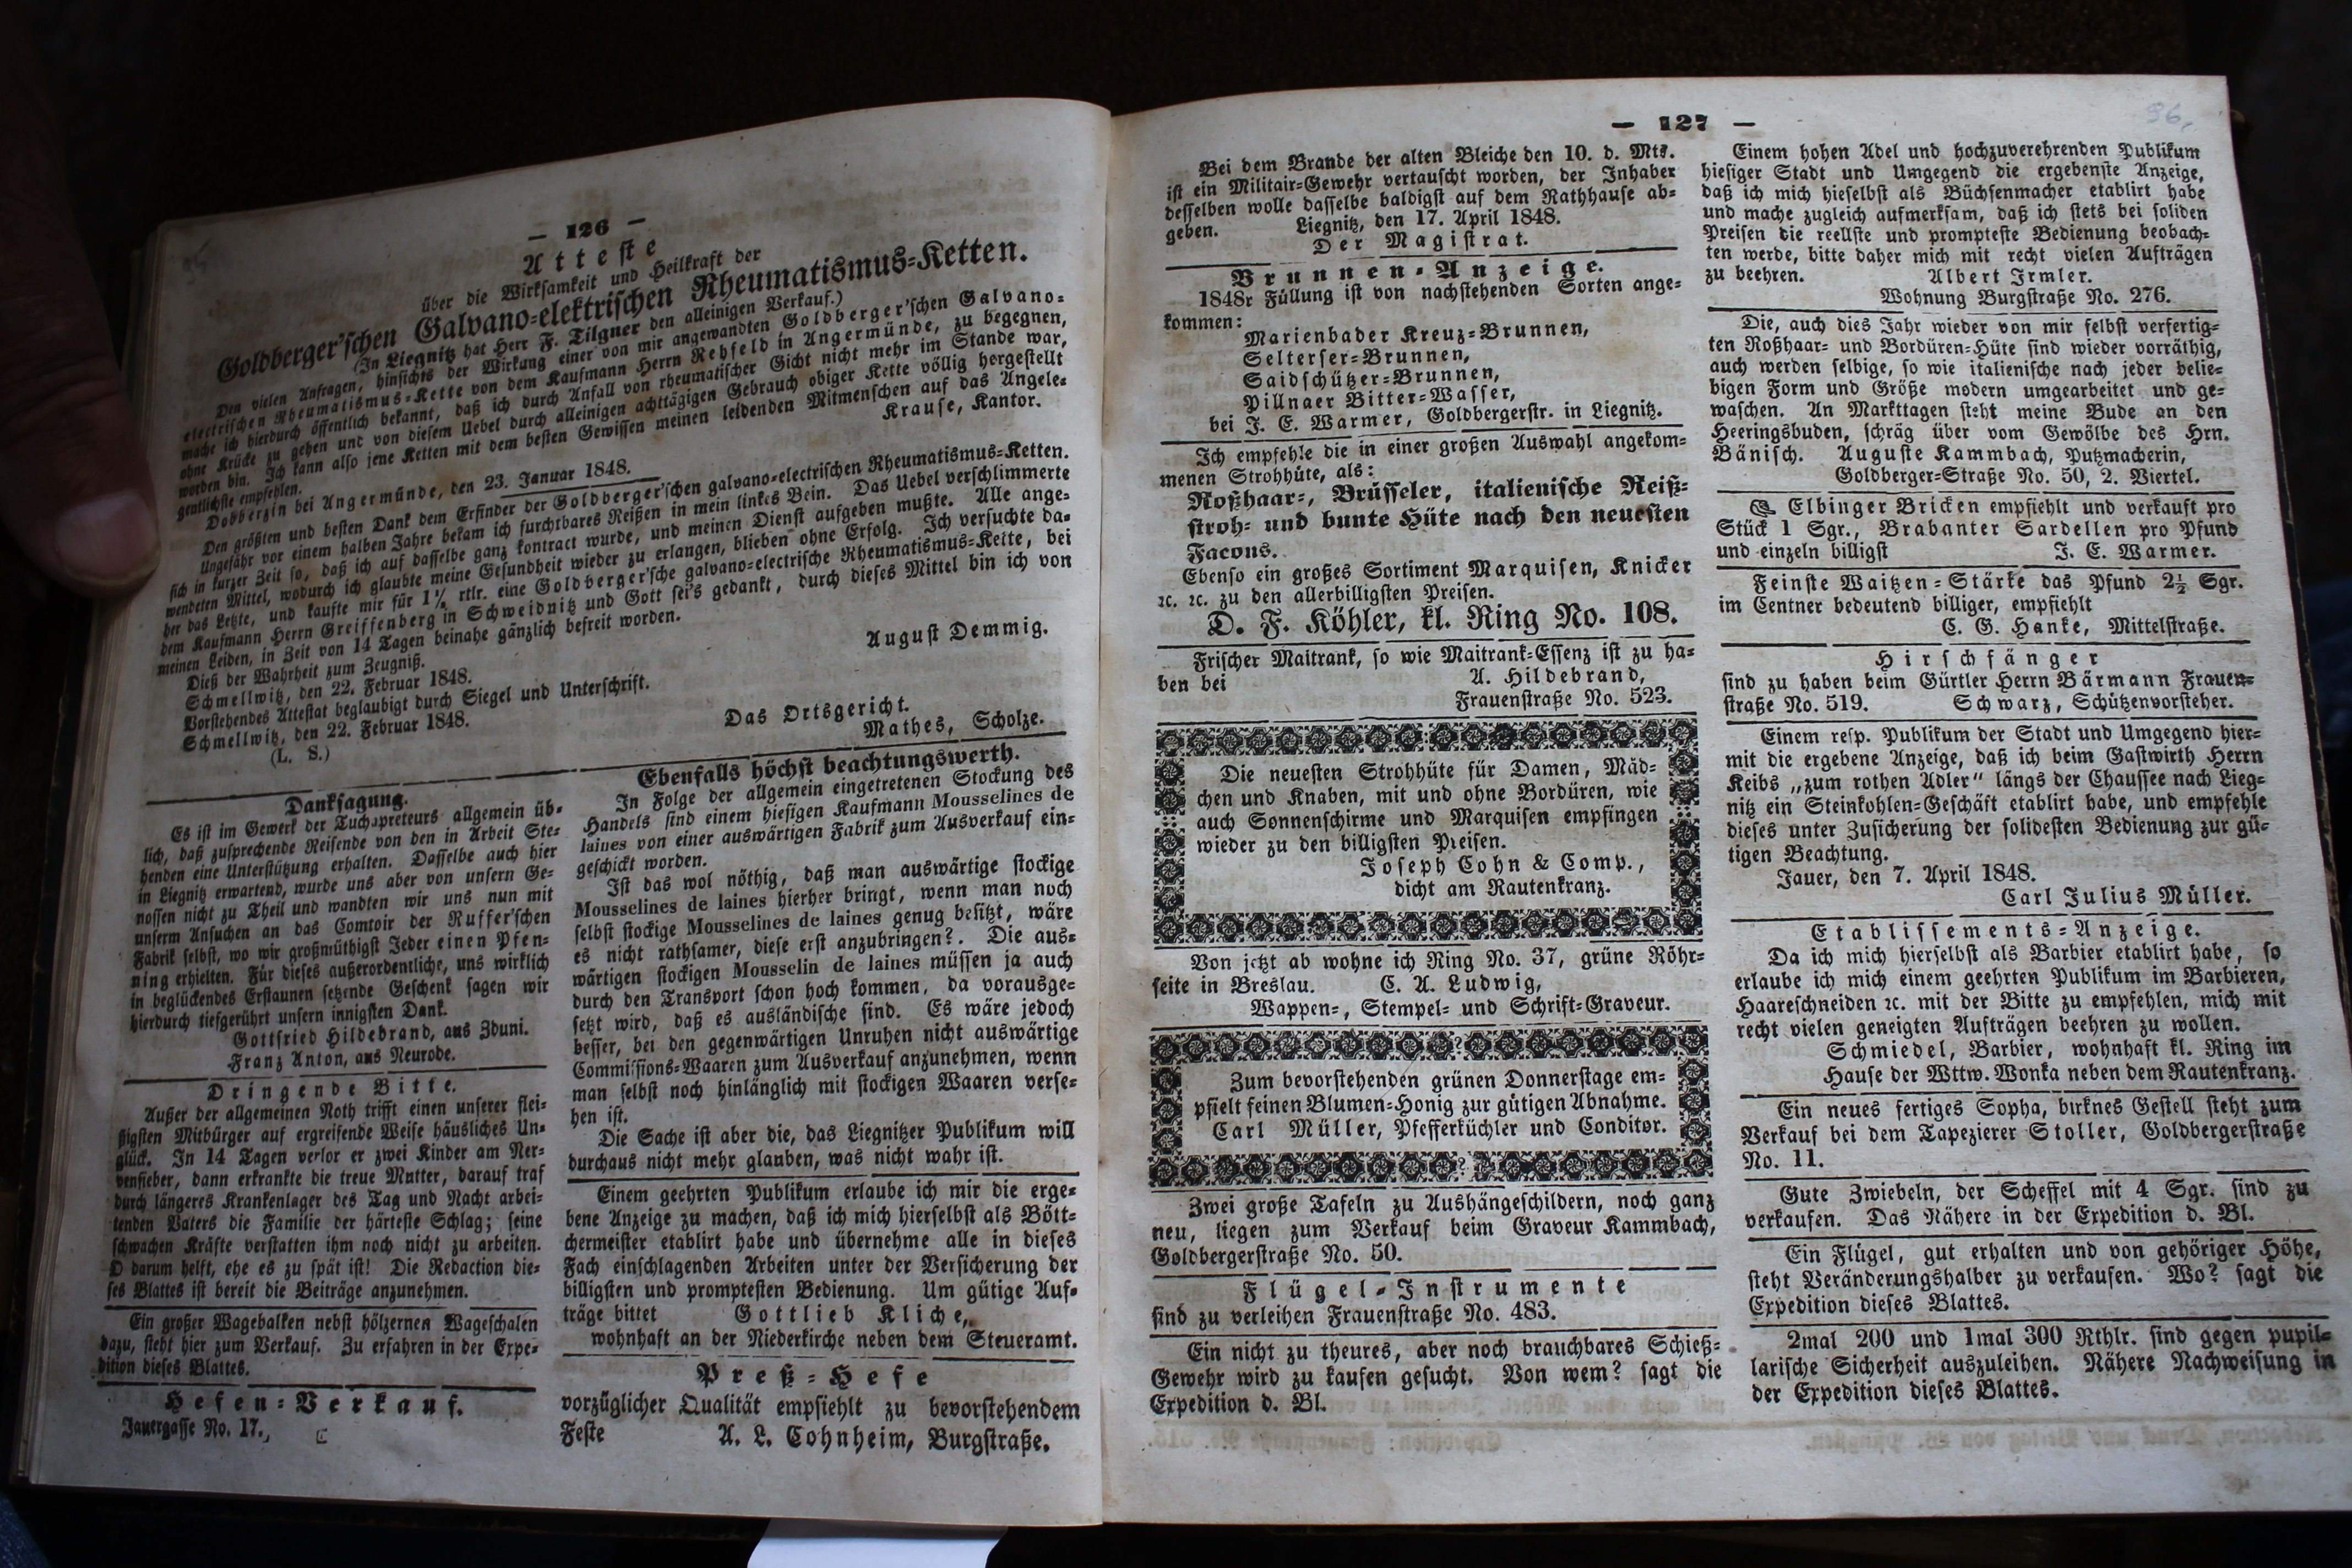 — 126 —
Atteste
über die Wirksamkeit und Heilkraft der
Goldberger'schen Galvano-elektrischen Rheumatismus-Ketten.
(In Liegnitz hat Herr F. Tilgner den alleinigen Verkauf.)
Den vielen Anfragen, hinsichts der Wirkung einer von mir angewandten Goldberger'schen Galvano-
electrischen Rheumatismus-Kette von dem Kaufmann Herrn Rehfeld in Angermünde, zu begegnen,
mache ich hierdurch öffentlich bekannt, daß ich durch Anfall von rheumatischer Gicht nicht mehr im Stande war,
ohne Krücke zu gehen und von diesem Uebel durch alleinigen achttägigen Gebrauch obiger Kette völlig hergestellt
worden bin. Ich kann also jene Ketten mit dem besten Gewissen meinen leidenden Mitmenschen auf das Angele-
gentlichste empfehlen. Krause, Kantor.
Dobberzin bei Angermünde, den 23. Januar 1848.
Den größten und besten Dank dem Erfinder der Goldberger'schen galvano-electrischen Rheumatismus-Ketten.
Ungefähr vor einem halben Jahre bekam ich furchtbares Reißen in mein linkes Bein. Das Uebel verschlimmerte
sich in kurzer Zeit so, daß ich auf dasselbe ganz kontract wurde, und meinen Dienst aufgeben mußte. Alle ange-
wendeten Mittel, wodurch ich glaubte meine Gesundheit wieder zu erlangen, blieben ohne Erfolg. Ich versuchte da-
her das Letzte, und kaufte mir für 1½ rtlr. eine Goldberger'sche galvano-electrische Rheumatismus-Kette, bei
dem Kaufmann Herrn Greiffenberg in Schweidnitz und Gott sei's gedankt, durch dieses Mittel bin ich von
meinen Leiden, in Zeit von 14 Tagen beinahe gänzlich befreit worden.
Dieß der Wahrheit zum Zeugniß.
August Demmig.
Schmellwitz, den 22. Februar 1848.
Vorstehendes Attestat beglaubigt durch Siegel und Unterschrift.
Schmellwitz, den 22. Februar 1848.
Das Ortsgericht.
(L. S.) Mathes, Scholze.
Danksagung.
Es ist im Gewerk der Tuchapreteurs allgemein üb-
lich, daß zusprechende Reisende von den in Arbeit Ste-
henden eine Unterstützung erhalten. Dasselbe auch hier
in Liegnitz erwartend, wurde uns aber von unsern Ge-
nossen nicht zu Theil und wandten wir uns nun mit
unserm Ansuchen an das Comtoir der Ruffer'schen
Fabrik selbst, wo wir großmüthigst Jeder einen Pfen-
ning erhielten. Für dieses außerordentliche, uns wirklich
in beglückendes Erstaunen setzende Geschenk sagen wir
hierdurch tiefgerührt unsern innigsten Dank.
Gottfried Hildebrand, aus Zduni.
Franz Anton, aus Neurode.
Dringende Bitte.
Außer der allgemeinen Noth trifft einen unserer flei-
ßigsten Mitbürger auf ergreifende Weise häusliches Un-
glück. In 14 Tagen verlor er zwei Kinder am Ner-
venfieber, dann erkrankte die treue Mutter, darauf traf
durch längeres Krankenlager des Tag und Nacht arbei-
tenden Vaters die Familie der härteste Schlag; seine
schwachen Kräfte verstatten ihm noch nicht zu arbeiten.
O darum helft, ehe es zu spät ist! Die Redaction die-
ses Blattes ist bereit die Beiträge anzunehmen.
Ein großer Wagebalken nebst hölzernen Wageschalen
dazu, steht hier zum Verkauf. Zu erfahren in der Expe-
dition dieses Blattes.
Hefen-Verkauf.
Jauergasse No. 17.
Ebenfalls höchst beachtungswerth.
In Folge der allgemein eingetretenen Stockung des
Handels sind einem hiesigen Kaufmann Mousselines de
laines von einer auswärtigen Fabrik zum Ausverkauf ein-
geschickt worden.
Ist das wol nöthig, daß man auswärtige stockige
Mousselines de laines hierher bringt, wenn man noch
selbst stockige Mousselines de laines genug besitzt, wäre
es nicht rathsamer, diese erst anzubringen?. Die aus-
wärtigen stockigen Mousselin de laines müssen ja auch
durch den Transport schon hoch kommen, da vorausge-
setzt wird, daß es ausländische sind. Es wäre jedoch
besser, bei den gegenwärtigen Unruhen nicht auswärtige
Commissions-Waaren zum Ausverkauf anzunehmen, wenn
man selbst noch hinlänglich mit stockigen Waaren verse-
hen ist.
Die Sache ist aber die, das Liegnitzer Publikum will
durchaus nicht mehr glauben, was nicht wahr ist.
Einem geehrten Publikum erlaube ich mir die erge-
bene Anzeige zu machen, daß ich mich hierselbst als Bött-
chermeister etablirt habe und übernehme alle in dieses
Fach einschlagenden Arbeiten unter der Versicherung der
billigsten und promptesten Bedienung. Um gütige Auf-
träge bittet Gottlieb Kliche,
wohnhaft an der Niederkirche neben dem Steueramt.
Preß-Hefe
vorzüglicher Qualität empfiehlt zu bevorstehendem
Feste A. L. Cohnheim, Burgstraße.
— 127 —
96,
Bei dem Brande der alten Bleiche den 10. d. Mts.
ist ein Militair-Gewehr vertauscht worden, der Inhaber
desselben wolle dasselbe baldigst auf dem Rathhause ab-
geben. Liegnitz, den 17. April 1848.
Der Magistrat.
Brunnen-Anzeige.
1848r Füllung ist von nachstehenden Sorten ange-
kommen:
Marienbader Kreuz-Brunnen,
Selterser-Brunnen,
Saidschützer-Brunnen,
Pillnaer Bitter-Wasser,
bei J. E. Warmer, Goldbergerstr. in Liegnitz.
Ich empfehle die in einer großen Auswahl angekom-
menen Strohhüte, als:
Roßhaar-, Brüsseler, italienische Reiß-
stroh- und bunte Hüte nach den neuesten
Facons.
Ebenso ein großes Sortiment Marquisen, Knicker
ꝛc. ꝛc. zu den allerbilligsten Preisen.
D. F. Köhler, kl. Ring No. 108.
Frischer Maitrank, so wie Maitrank-Essenz ist zu ha-
ben bei A. Hildebrand,
Frauenstraße No. 523.
Die neuesten Strohhüte für Damen, Mäd-
chen und Knaben, mit und ohne Bordüren, wie
auch Sonnenschirme und Marquisen empfingen
wieder zu den billigsten Preisen.
Joseph Cohn & Comp.,
dicht am Rautenkranz.
Von jetzt ab wohne ich Ring No. 37, grüne Röhr-
seite in Breslau. C. A. Ludwig,
Wappen-, Stempel- und Schrift-Graveur.
Zum bevorstehenden grünen Donnerstage em-
pfielt feinen Blumen-Honig zur gütigen Abnahme.
Carl Müller, Pfefferküchler und Conditor.
Zwei große Tafeln zu Aushängeschildern, noch ganz
neu, liegen zum Verkauf beim Graveur Kammbach,
Goldbergerstraße No. 50.
Flügel-Instrumente
sind zu verleihen Frauenstraße No. 483.
Ein nicht zu theures, aber noch brauchbares Schieß-
Gewehr wird zu kaufen gesucht. Von wem? sagt die
Expedition d. Bl.
Einem hohen Adel und hochzuverehrenden Publikum
hiesiger Stadt und Umgegend die ergebenste Anzeige,
daß ich mich hieselbst als Büchsenmacher etablirt habe
und mache zugleich aufmerksam, daß ich stets bei soliden
Preisen die reellste und prompteste Bedienung beobach-
ten werde, bitte daher mich mit recht vielen Aufträgen
zu beehren. Albert Irmler.
Wohnung Burgstraße No. 276.
Die, auch dies Jahr wieder von mir selbst verfertig-
ten Roßhaar- und Bordüren-Hüte sind wieder vorräthig,
auch werden selbige, so wie italienische nach jeder belie-
bigen Form und Größe modern umgearbeitet und ge-
waschen. An Markttagen steht meine Bude an den
Heeringsbuden, schräg über vom Gewölbe des Hrn.
Bänisch. Auguste Kammbach, Putzmacherin,
Goldberger-Straße No. 50, 2. Viertel.
Elbinger Bricken empfiehlt und verkauft pro
Stück 1 Sgr., Brabanter Sardellen pro Pfund
und einzeln billigst J. E. Warmer.
Feinste Waitzen-Stärke das Pfund 2½ Sgr.
im Centner bedeutend billiger, empfiehlt
C. G. Hanke, Mittelstraße.
Hirschfänger
sind zu haben beim Gürtler Herrn Bärmann Frauen-
straße No. 519. Schwarz, Schützenvorsteher.
Einem resp. Publikum der Stadt und Umgegend hier-
mit die ergebene Anzeige, daß ich beim Gastwirth Herrn
Keibs „zum rothen Adler“ längs der Chaussee nach Lieg-
nitz ein Steinkohlen-Geschäft etablirt habe, und empfehle
dieses unter Zusicherung der solidesten Bedienung zur gü-
tigen Beachtung.
Jauer, den 7. April 1848.
Carl Julius Müller.
Etablissements-Anzeige.
Da ich mich hierselbst als Barbier etablirt habe, so
erlaube ich mich einem geehrten Publikum im Barbieren,
Haareschneiden ꝛc. mit der Bitte zu empfehlen, mich mit
recht vielen geneigten Aufträgen beehren zu wollen.
Schmiedel, Barbier, wohnhaft kl. Ring im
Hause der Wttw. Wonka neben dem Rautenkranz.
Ein neues fertiges Sopha, birknes Gestell steht zum
Verkauf bei dem Tapezierer Stoller, Goldbergerstraße
No. 11.
Gute Zwiebeln, der Scheffel mit 4 Sgr. sind zu
verkaufen. Das Nähere in der Expedition d. Bl.
Ein Flügel, gut erhalten und von gehöriger Höhe,
steht Veränderungshalber zu verkaufen. Wo? sagt die
Expedition dieses Blattes.
2mal 200 und 1mal 300 Rthlr. sind gegen pupil-
larische Sicherheit auszuleihen. Nähere Nachweisung in
der Expedition dieses Blattes.